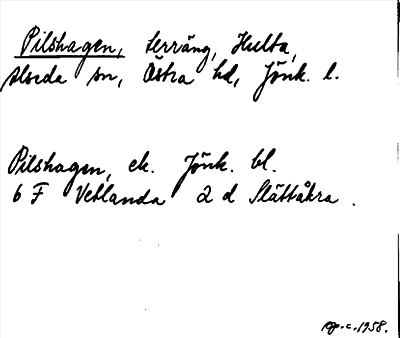 Pilshagen, terräng, Hulta,
Alseda sn, Östra hd, Jönk. l.
Pilshagen, ek. Jönk. bl.
6 F Vetlanda 2 d Slättåkra.
1958.